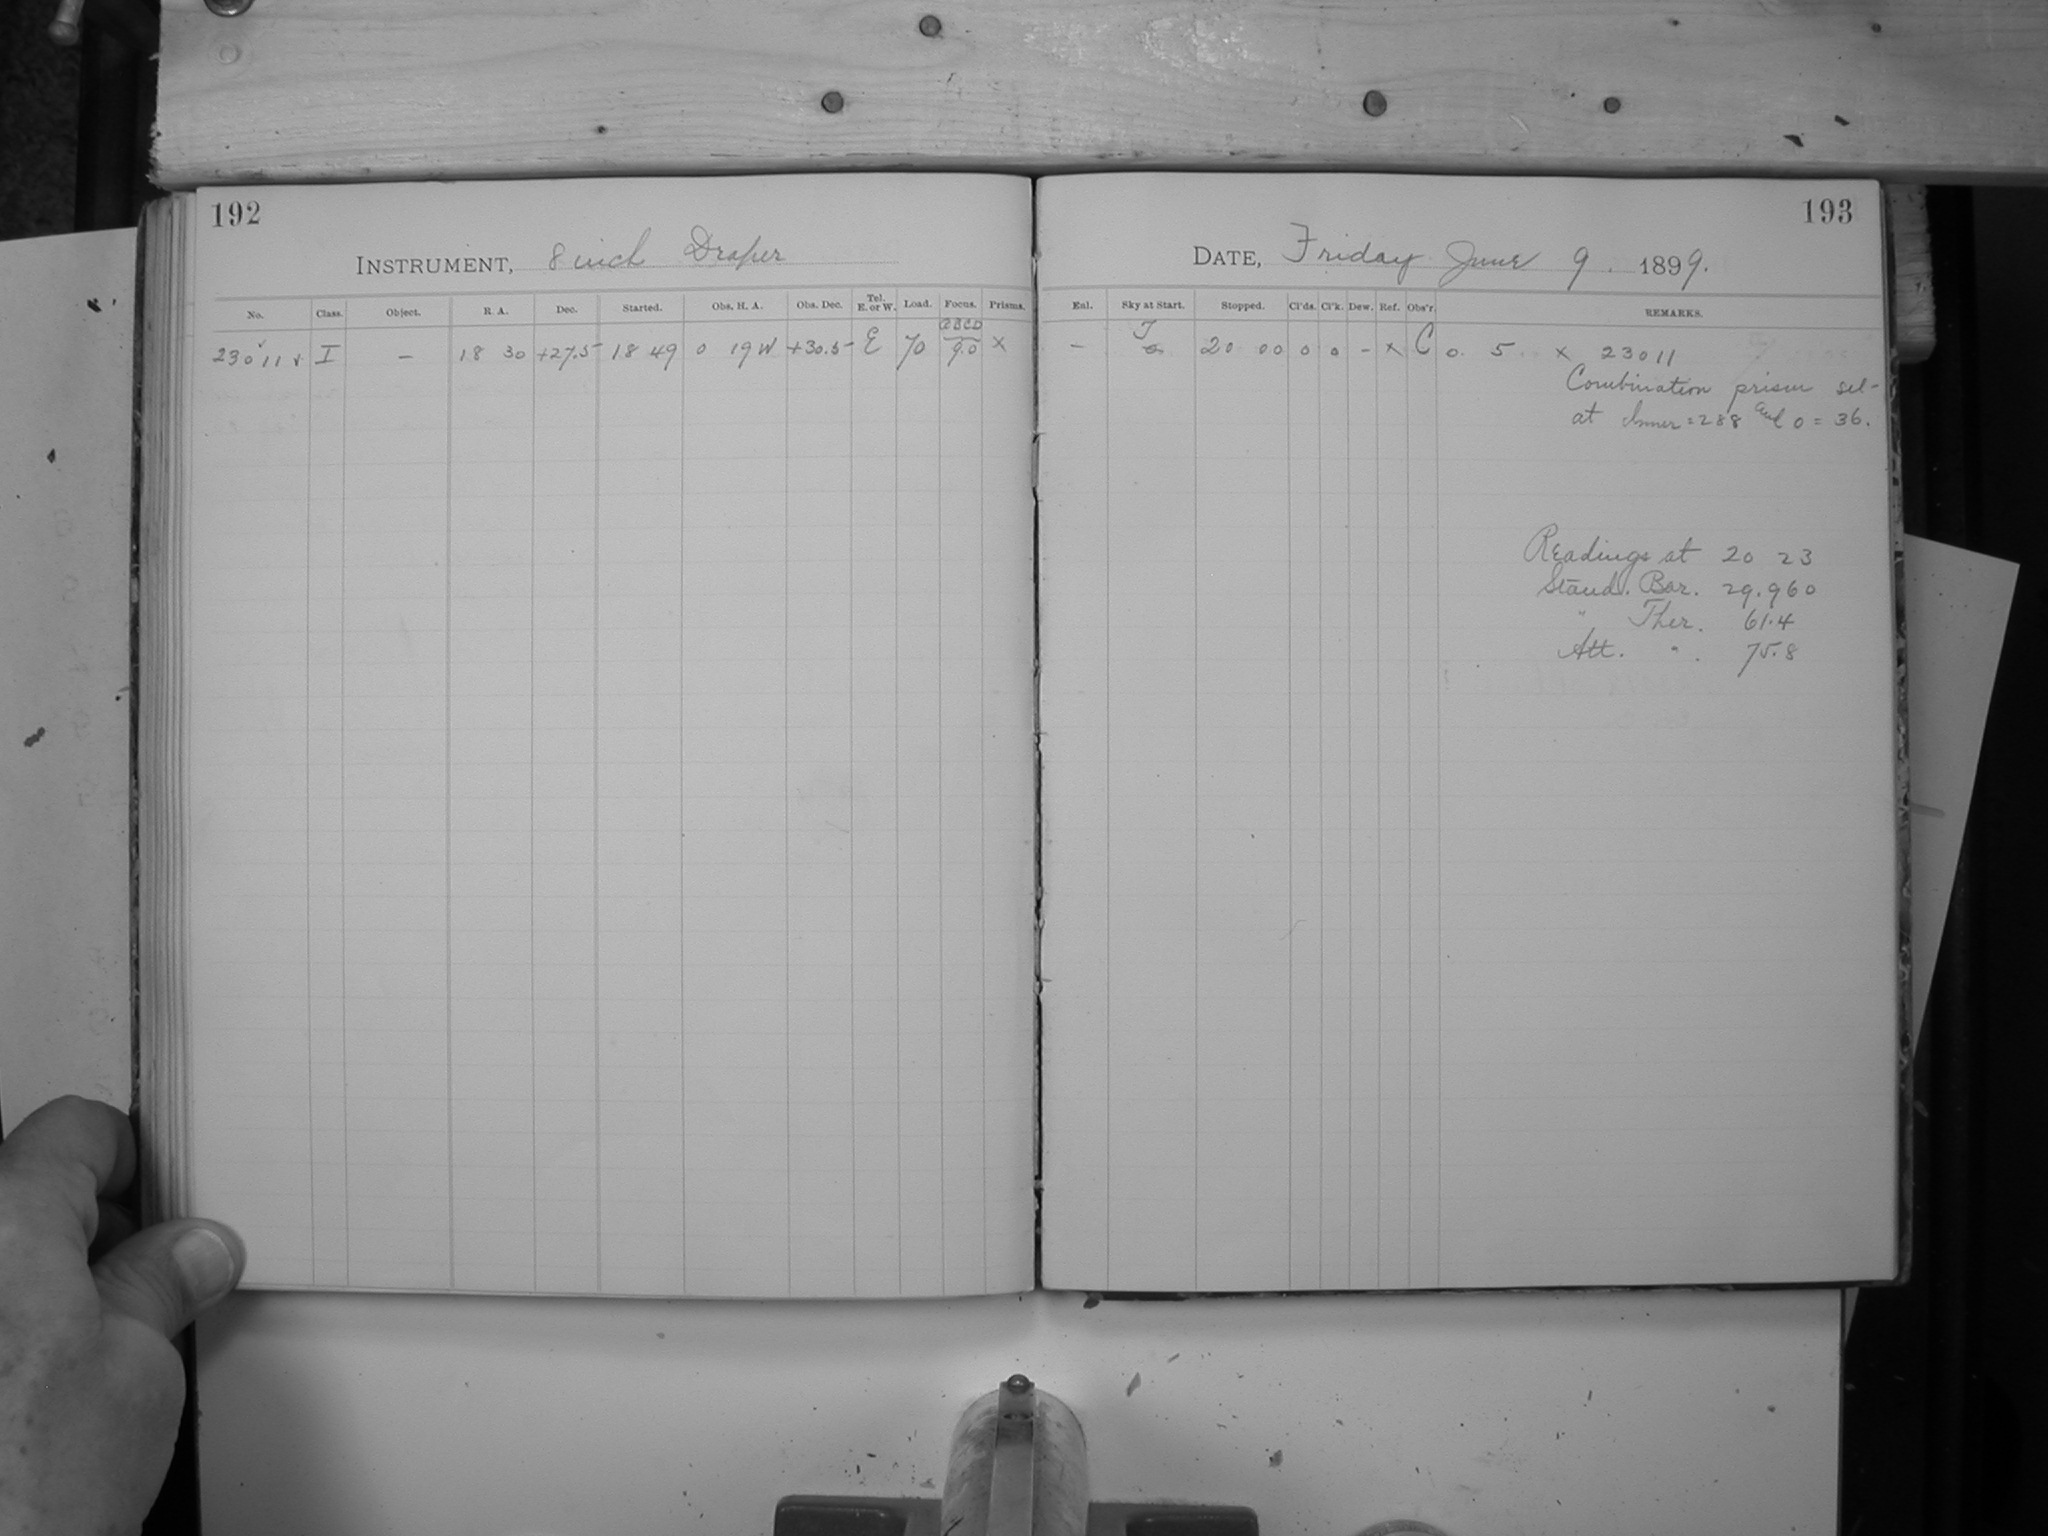 192
INSTRUMENT, 8 inch Draper
No. Class. Object. R. A. Dec. Started. Obs. H. A. Obs. Dec. Tel. E. or W. Load. Focus. Prisms.
23011 v I – 18 30 +27.5 18 49 0 19 W +30.5 E 70 ABCD 9.0 x
193
DATE, Friday June 9. 1899.
Enl. Sky at Start. Stopped. Cl'ds. Cl'k. Dew. Ref. Obs'r. REMARKS.
– 20 00 0 0 – x C 0. 5 x 23011
Combination prism set
at Inner = 288 and 0 = 36.
Readings at 20 23
Stand. Bar. 29.960
" Ther. 61.4
Att. " . 75.8